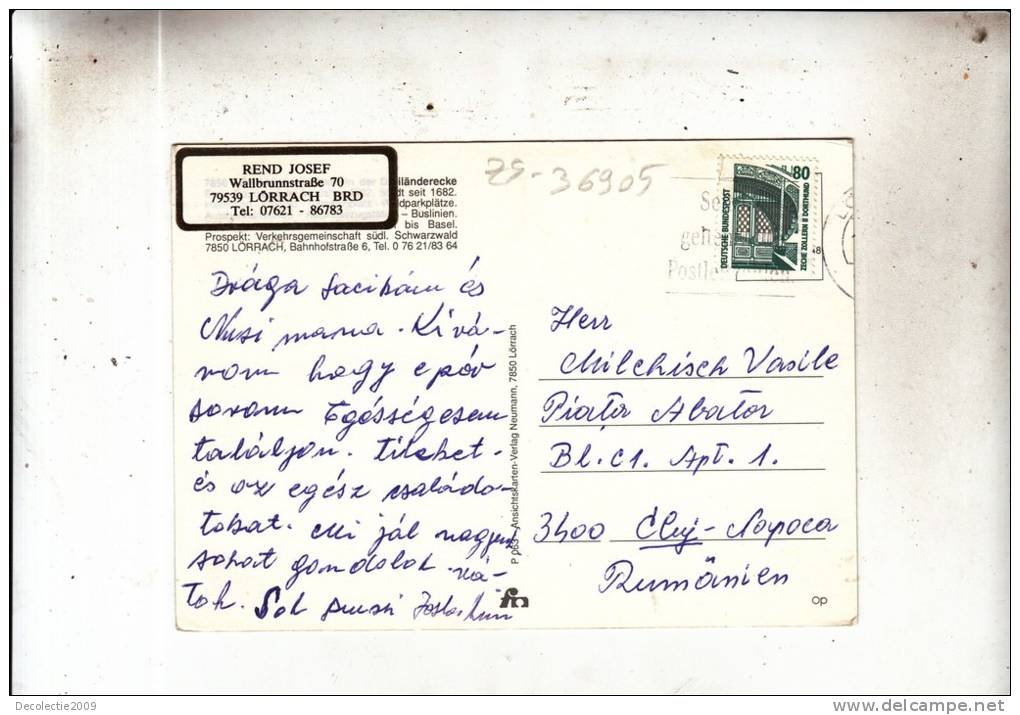 REND JOSEF
Wallbrunnstraße 70
79539 LÖRRACH BRD
Tel: 07621 - 86783
iländerecke
dt seit 1682.
dparkplätze.
– Buslinien.
bis Basel.
Prospekt: Verkehrsgemeinschaft südl. Schwarzwald
7850 LÖRRACH, Bahnhofstraße 6, Tel. 0 76 21/83 64
ZS-36905
80
DEUTSCHE BUNDESPOST
ZECHE ZOLLERN II DORTMUND
Drága Lacikám és
Nusi mama. Kívá-
nom hogy e pár
sorom Egésségesen
találjon. Titeket.
és az egész családo-
tokat. Mi jól nagyon
sokat gondolok rá-
tok. Sok puszi
P 063 Ansichtskarten-Verlag Neumann, 7850 Lörrach
Herr
Milchisch Vasile
Piața Abator
Bl. C1. Apt. 1.
3400 Cluj-Napoca
Rumänien
fn
op
Decolectie2009
www.delcampe.net